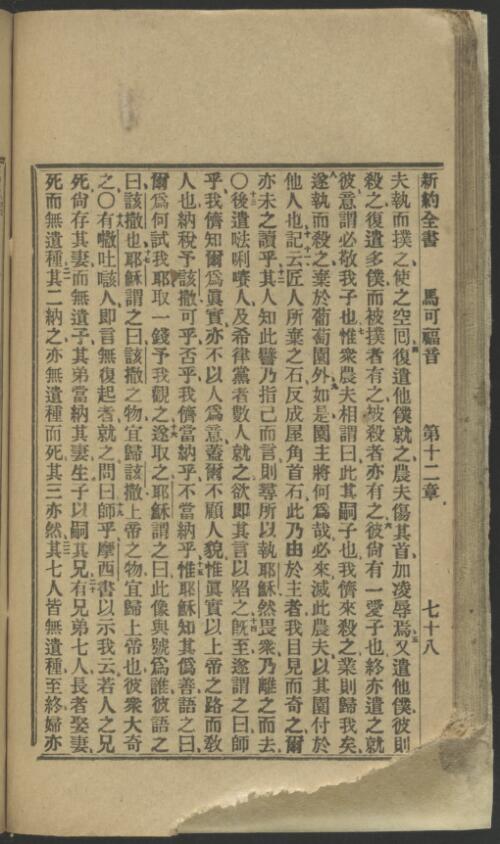 新約全書 馬可福音 第十二章 七十八
夫執而撲之使之空囘復遣他僕就之農夫傷其首加凌辱焉又遣他僕彼則
殺之復遣多僕而被撲者有之被殺者亦有之彼尙有一愛子也終亦遣之就
彼意謂必敬我子也惟衆農夫相謂曰此其嗣子也我儕來殺之業則歸我矣
遂執而殺之棄於葡萄園外如是園主將何爲哉必來滅此農夫以其園付於
他人也記云匠人所棄之石反成屋角首石此乃由於主者我目見而奇之爾
亦未之讀乎其人知此譬乃指己而言則尋所以執耶穌然畏衆乃離之而去
○後遣𠵽唎嚌人及希律黨者數人就之欲即其言以陷之旣至遂謂之曰師
乎我儕知爾爲眞實亦不以人爲意蓋爾不顧人貌惟眞實以上帝之路而敎
人也納稅予該撒可乎否乎我儕當納乎不當納乎惟耶穌知其僞善語之曰
爾爲何試我耶取一錢予我觀之遂取之耶穌謂之曰此像與號爲誰彼語之
曰該撒也耶穌謂之曰該撒之物宜歸該撒上帝之物宜歸上帝也彼衆大奇
之○有㘔吐㗒人即言無復起者就之問曰師乎摩西書以示我云若人之兄
死尙存其妻而無遺子其弟當納其妻生子以嗣其兄有兄弟七人長者娶妻
死而無遺種其二納之亦無遺種而死其三亦然其七人皆無遺種至終婦亦